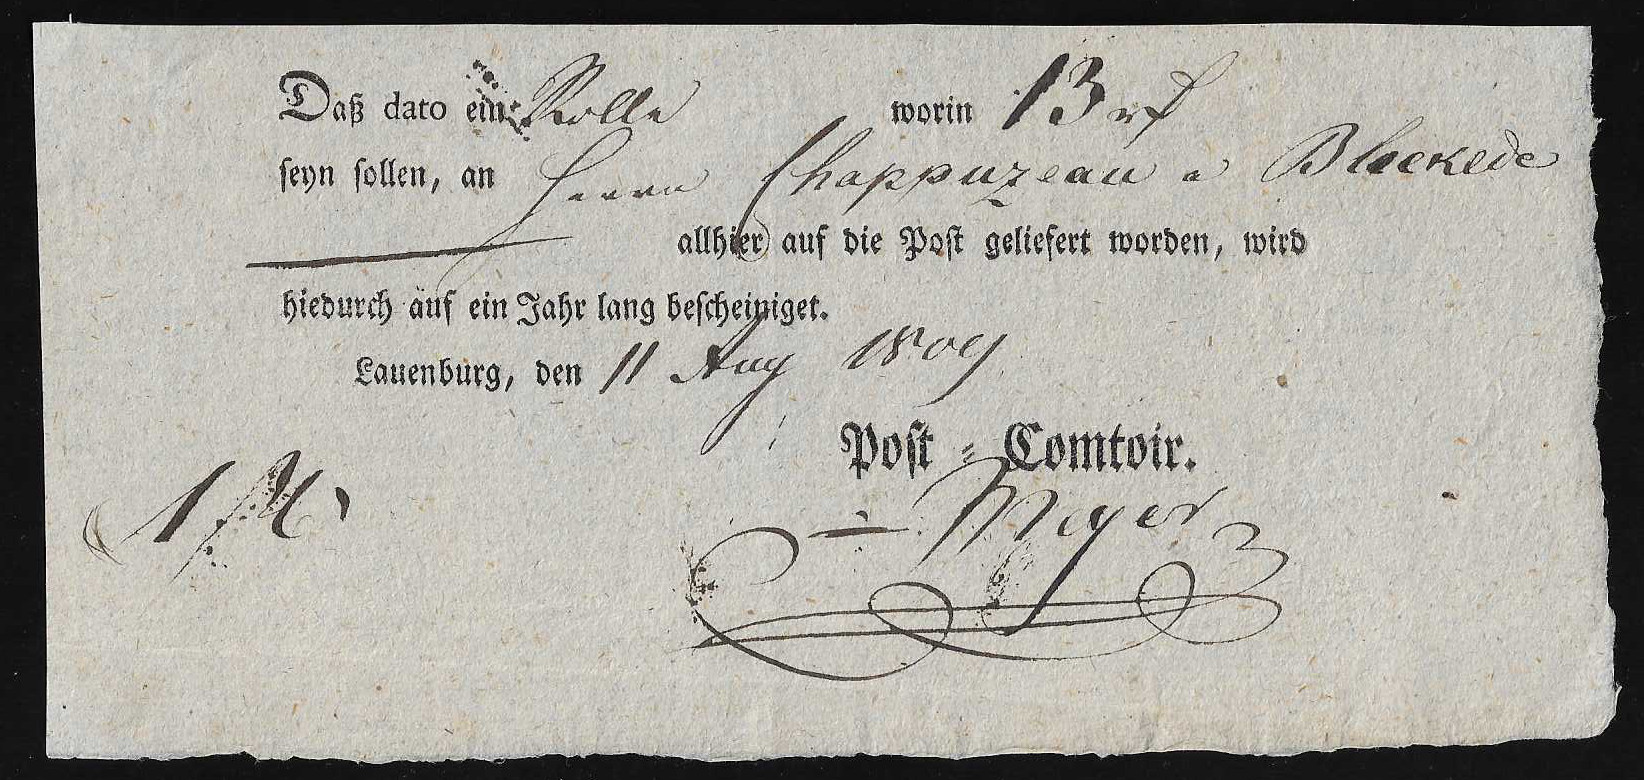 Daß dato ein Rolle worin 13 rf
seyn sollen, an Herrn Chappuzeau a Bleckede
allhier auf die Post geliefert worden, wird
hiedurch auf ein Jahr lang bescheiniget.
Lauenburg, den 11 Aug 1809
Post = Comtoir.
Meyer